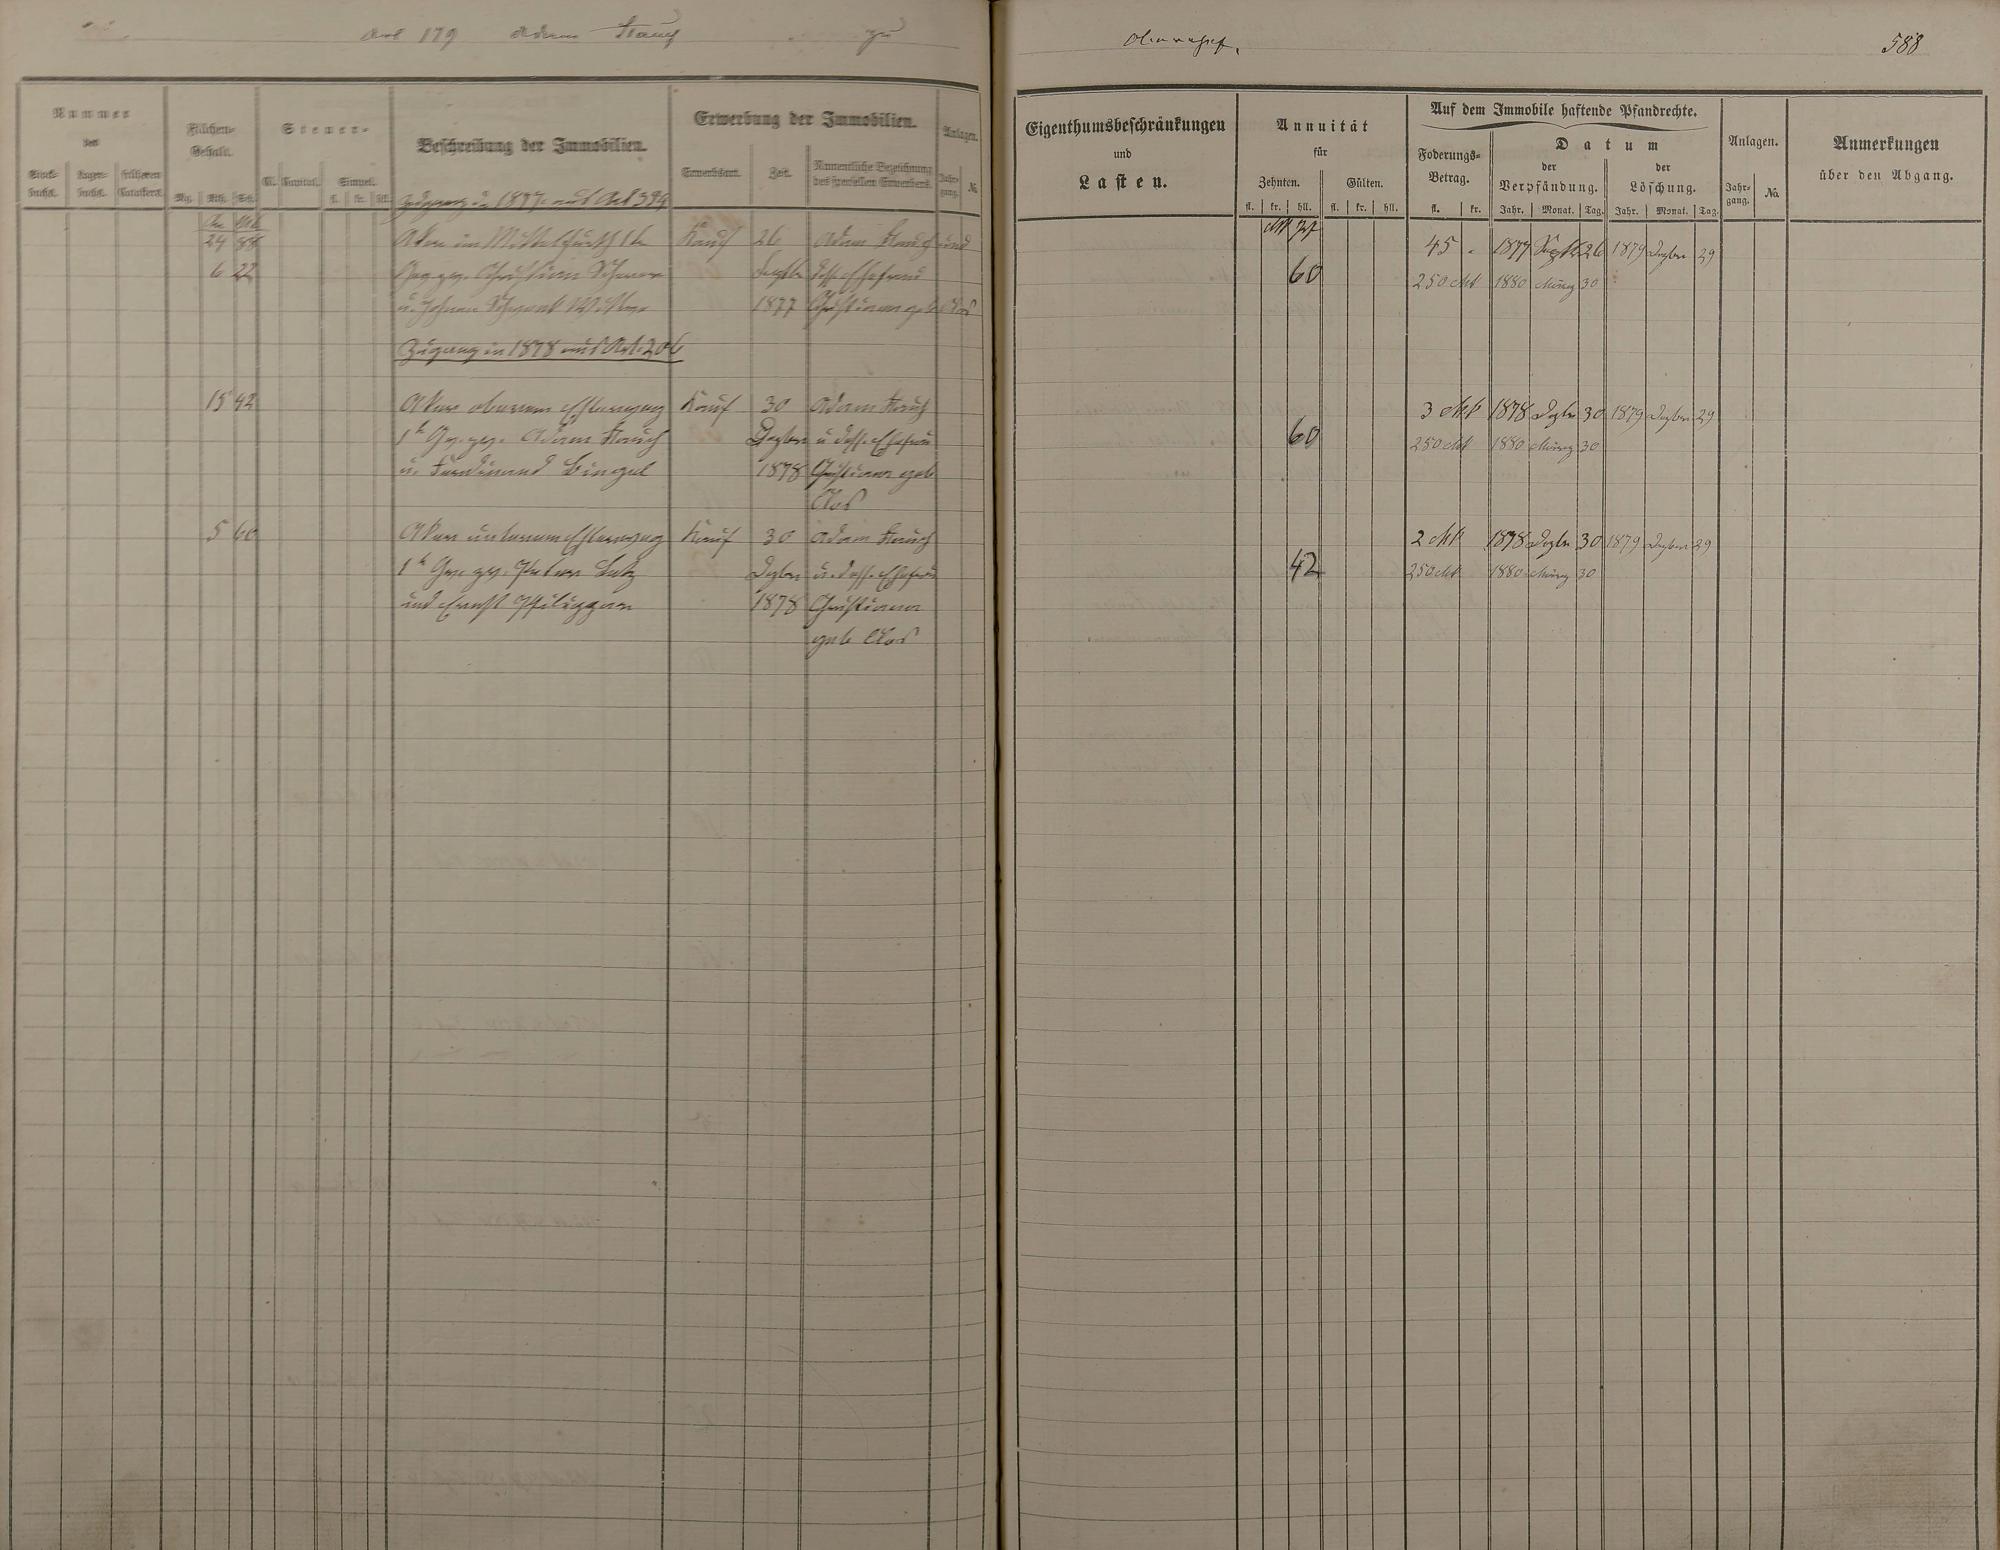 Art 179 Adam Rauch zu
Nummer
des
Stock-
buchs.
Lager-
buchs.
früheren
Catasters.
Flächen-
Gehalt.
Mg. Rth. Sch.
Steuer-
Cl. Capital. Simpel.
fl. kr. hll.
Beschreibung der Immobilien.
Erwerbung der Immobilien.
Erwerbsart. Zeit. Namentliche Bezeichnung
des speciellen Erwerbers.
Anlagen.
Jahr-
gang. №
Zugang in 1877 aus Art 394
24 88 Acker im 1r Kauf 26 Adam Rauch und
6 22 Gew. zw. Christian Septbr dess. Ehefrau
u. Johann Wittwe 1877 Christiane geb Clos
Zugang in 1878 aus Art. 206
15 42 Acker oberem Kauf 30 Adam Rauch
1r Gew. zw. Adam Rauch Dezbr u dess. Ehefrau
u. Ferdinand Bingel 1878 Christiane geb
Clos
5 60 Acker unterem Kauf 30 Adam Rauch
1r Gew. zw. Peter Dezbr u. dess. Ehefrau
und Ernst 1878 Christiane
geb Clos
588
Eigenthumsbeschränkungen
und
Lasten.
Annuität
für
Zehnten. Gülten.
fl. kr. hll. fl. kr. hll.
Auf dem Immobile haftende Pfandrechte.
Foderungs-
Betrag.
fl. kr.
Datum
der
Verpfändung.
der
Löschung.
Jahr. Monat. Tag. Jahr. Monat. Tag.
Anlagen.
Jahr-
gang. №
Anmerkungen
über den Abgang.
45 - 1877 Septbr 26 1879 Dezber 29
60 250 Mk 1880 März 30
3 Mk 1878 Dezbr 30 1879 Dezber 29
60 250 Mk 1880 März 30
2 Mk 1878 Dezbr 30 1879 Dezber 29
42 250 Mk 1880 März 30